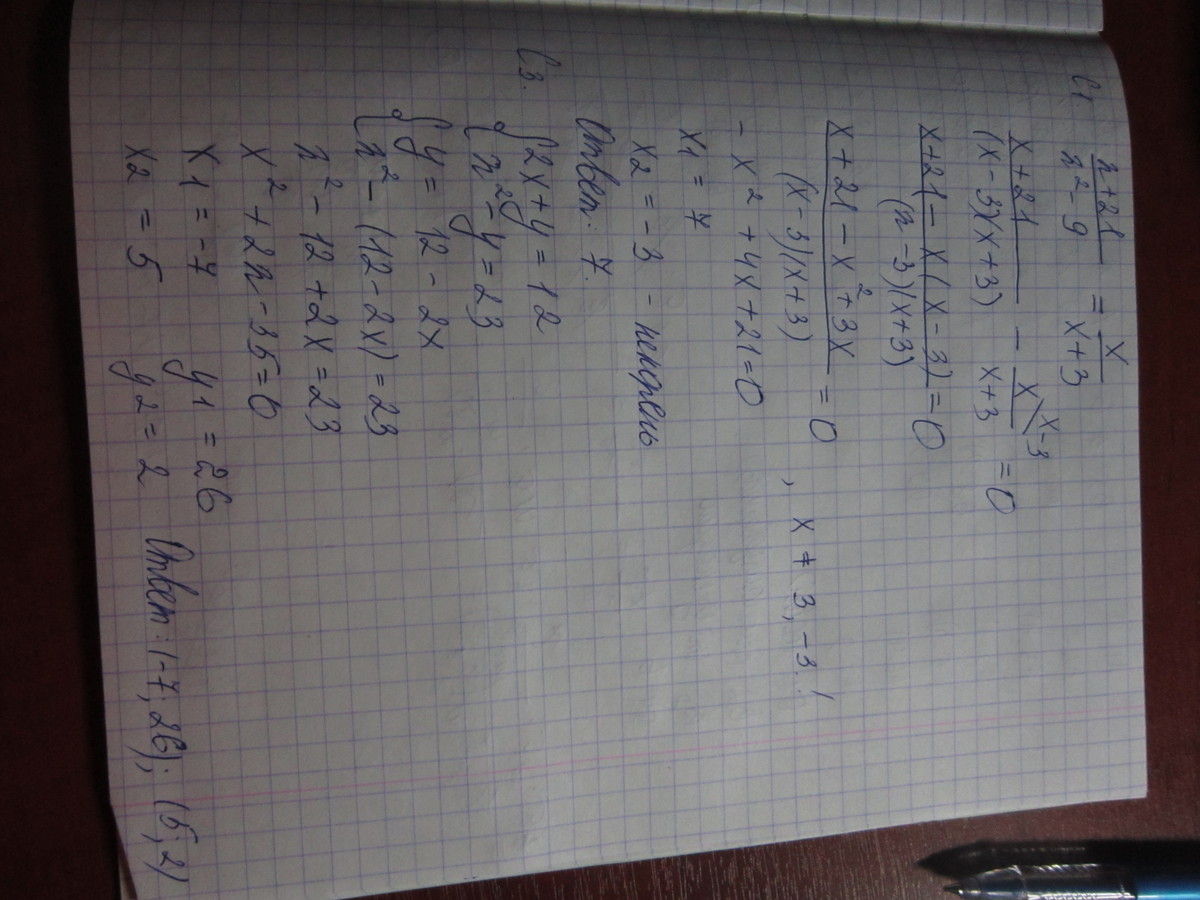 С1
x+21/x²-9 = x/x+3
x+21/(x-3)(x+3) - x\x-3/x+3 = 0
x+21-x(x-3)/(x-3)(x+3) = 0
x+21-x²+3x/(x-3)(x+3) = 0
-x²+4x+21=0, x≠3,-3!
x1=7
x2=-3 - не корень
Ответ: 7.
С3. {2x+y=12
{x²-y=23
{y=12-2x
{x²-(12-2x)=23
x²-12+2x=23
x²+2x-35=0
x1=-7 y1=26
x2=5 y2=2 Ответ: (-7; 26); (5; 2)